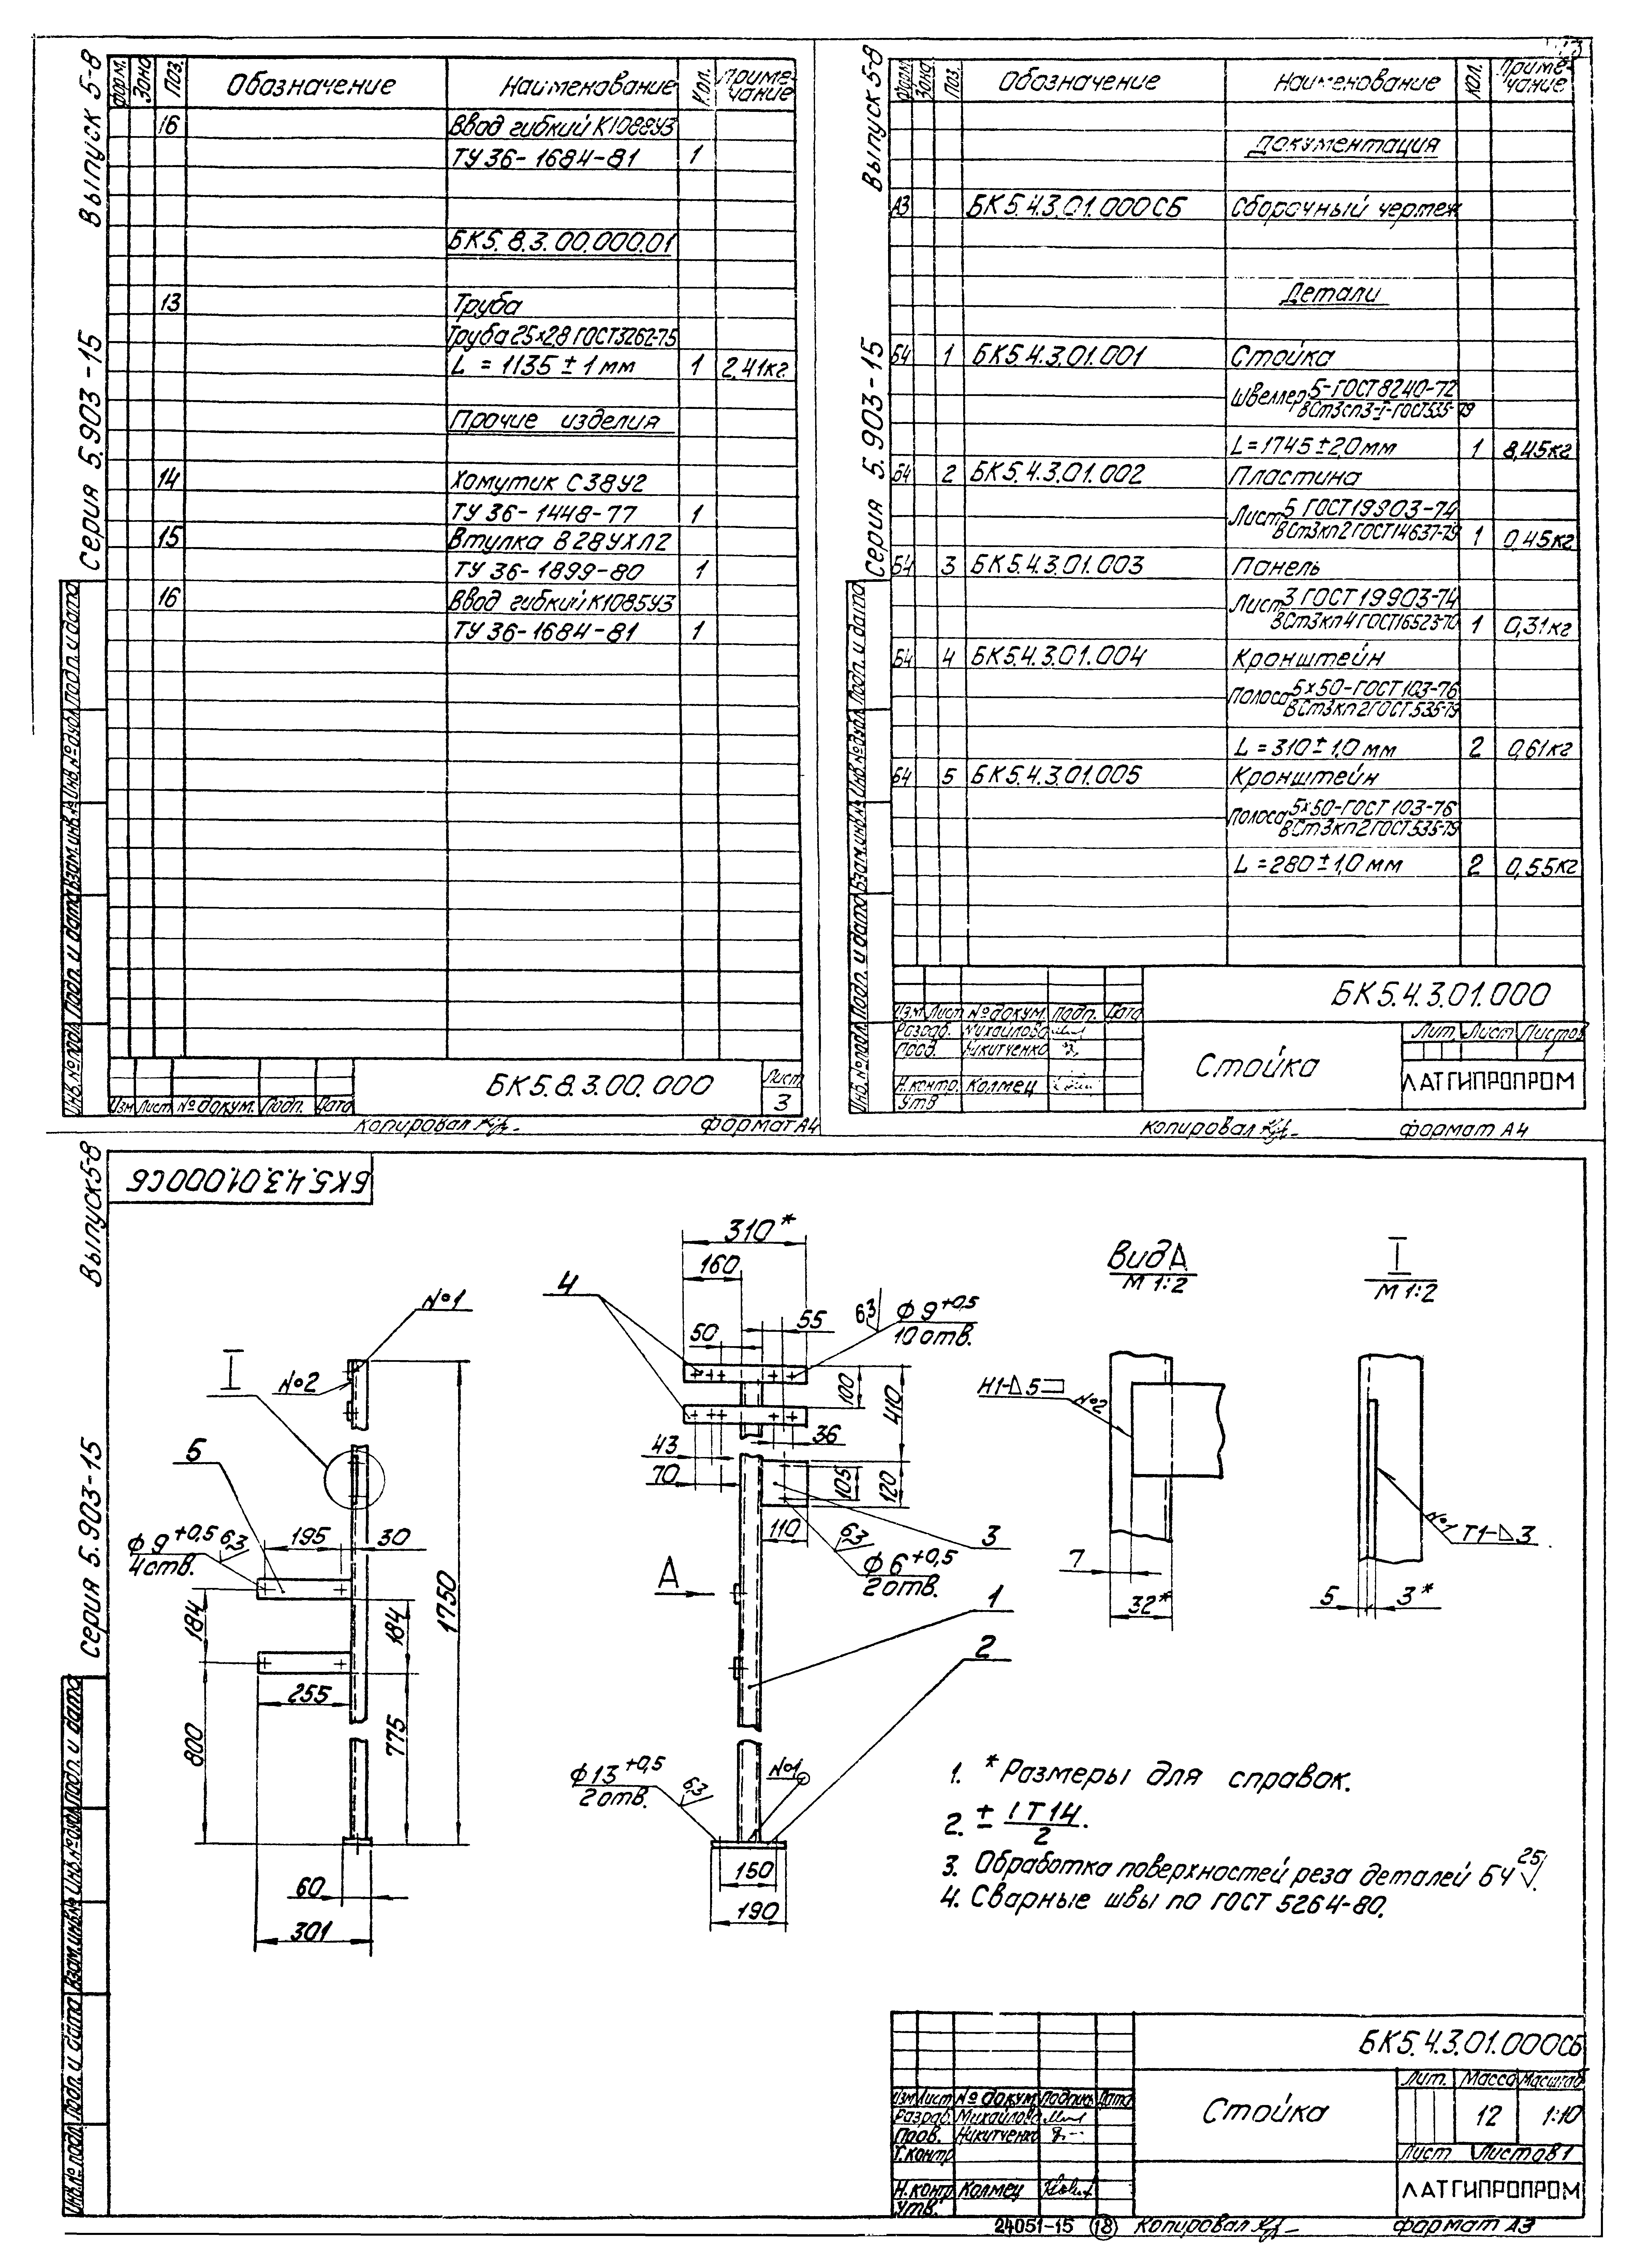 Выпуск 5-8
Серия 5.903-15
Форм.
Зона
Поз.
Обозначение
Наименование
Кол.
Примечание
16 Ввод гибкий К1088У3
ТУ 36-1684-81 1
БК5.8.3.00.000.01
13 Труба
Труба 25×2,8 ГОСТ 3262-75
L = 1135 ± 1 мм 1 2,41кг
Прочие изделия
14 Хомутик С38У2
ТУ 36-1448-77 1
15 Втулка В28УХЛ2
ТУ 36-1899-80 1
16 Ввод гибкий К1085У3
ТУ 36-1684-81 1
Инв.№подл. Подп. и дата Взам.инв.№ Инв.№дубл. Подп. и дата
Изм Лист № докум. Подп. Дата
БК5.8.3.00.000
Лист
3
Копировал
Формат А4
Выпуск 5-8
Серия 5.903-15
Форм.
Зона
Поз.
Обозначение
Наименование
Кол.
Примечание
Документация
А3 БК5.4.3.01.000СБ Сборочный чертеж
Детали
Б4 1 БК5.4.3.01.001 Стойка
Швеллер 5-ГОСТ 8240-72
ВСт3сп3-I-ГОСТ535-79
L=1745±2,0мм 1 8,45кг
Б4 2 БК5.4.3.01.002 Пластина
Лист 5 ГОСТ 19903-74
ВСт3кп2 ГОСТ14637-79 1 0,45кг
Б4 3 БК5.4.3.01.003 Панель
Лист 3 ГОСТ 19903-74
ВСт3кп4 ГОСТ16523-70 1 0,31кг
Б4 4 БК5.4.3.01.004 Кронштейн
Полоса 5×50-ГОСТ 103-76
ВСт3кп2 ГОСТ535-79
L=310±1,0 мм 2 0,61кг
Б4 5 БК5.4.3.01.005 Кронштейн
Полоса 5×50-ГОСТ 103-76
ВСт3кп2 ГОСТ535-79
L=280±1,0 мм 2 0,55кг
Инв.№подл. Подп. и дата Взам.инв.№ Инв.№дубл. Подп. и дата
БК5.4.3.01.000
Изм Лист № докум. Подп. Дата
Разраб. Михайлова
Пров. Никитченко
Н.контр. Колмец
Утв
Стойка
Лит. Лист Листов
1
ЛАТГИПРОПРОМ
Копировал
Формат А4
Выпуск 5-8
Серия 5.903-15
БК5.4.3.01.000СБ
№1
I
№2
5
Ф9+0,5 6,3
4отв.
195
30
184
184
1750
255
800
775
60
301
310*
160
4
50
55
6,3
Ф9+0,5
10 отв.
100
410
43
36
70
105
120
110
3
6,3
Ф6+0,5
2 отв.
А
1
2
Ф13+0,5
2 отв.
6,3
№1
150
190
Вид А
М 1:2
Н1-△5
№2
7
32*
I
М 1:2
№1
Т1-△3
5
3*
1. * Размеры для справок.
2. ± IT14/2.
3. Обработка поверхностей реза деталей БЧ 25.
4. Сварные швы по ГОСТ 5264-80.
Инв.№подл. Подп. и дата Взам.инв.№ Инв.№дубл. Подп. и дата
БК5.4.3.01.000СБ
Изм Лист № докум. Подпись Дата
Разраб. Михайлова
Пров. Никитченко
Т.контр
Н.контр Колмец
Утв.
Стойка
Лит. Масса Масштаб
12 1:10
Лист Листов 1
ЛАТГИПРОПРОМ
24051-15 18 Копировал
Формат А3